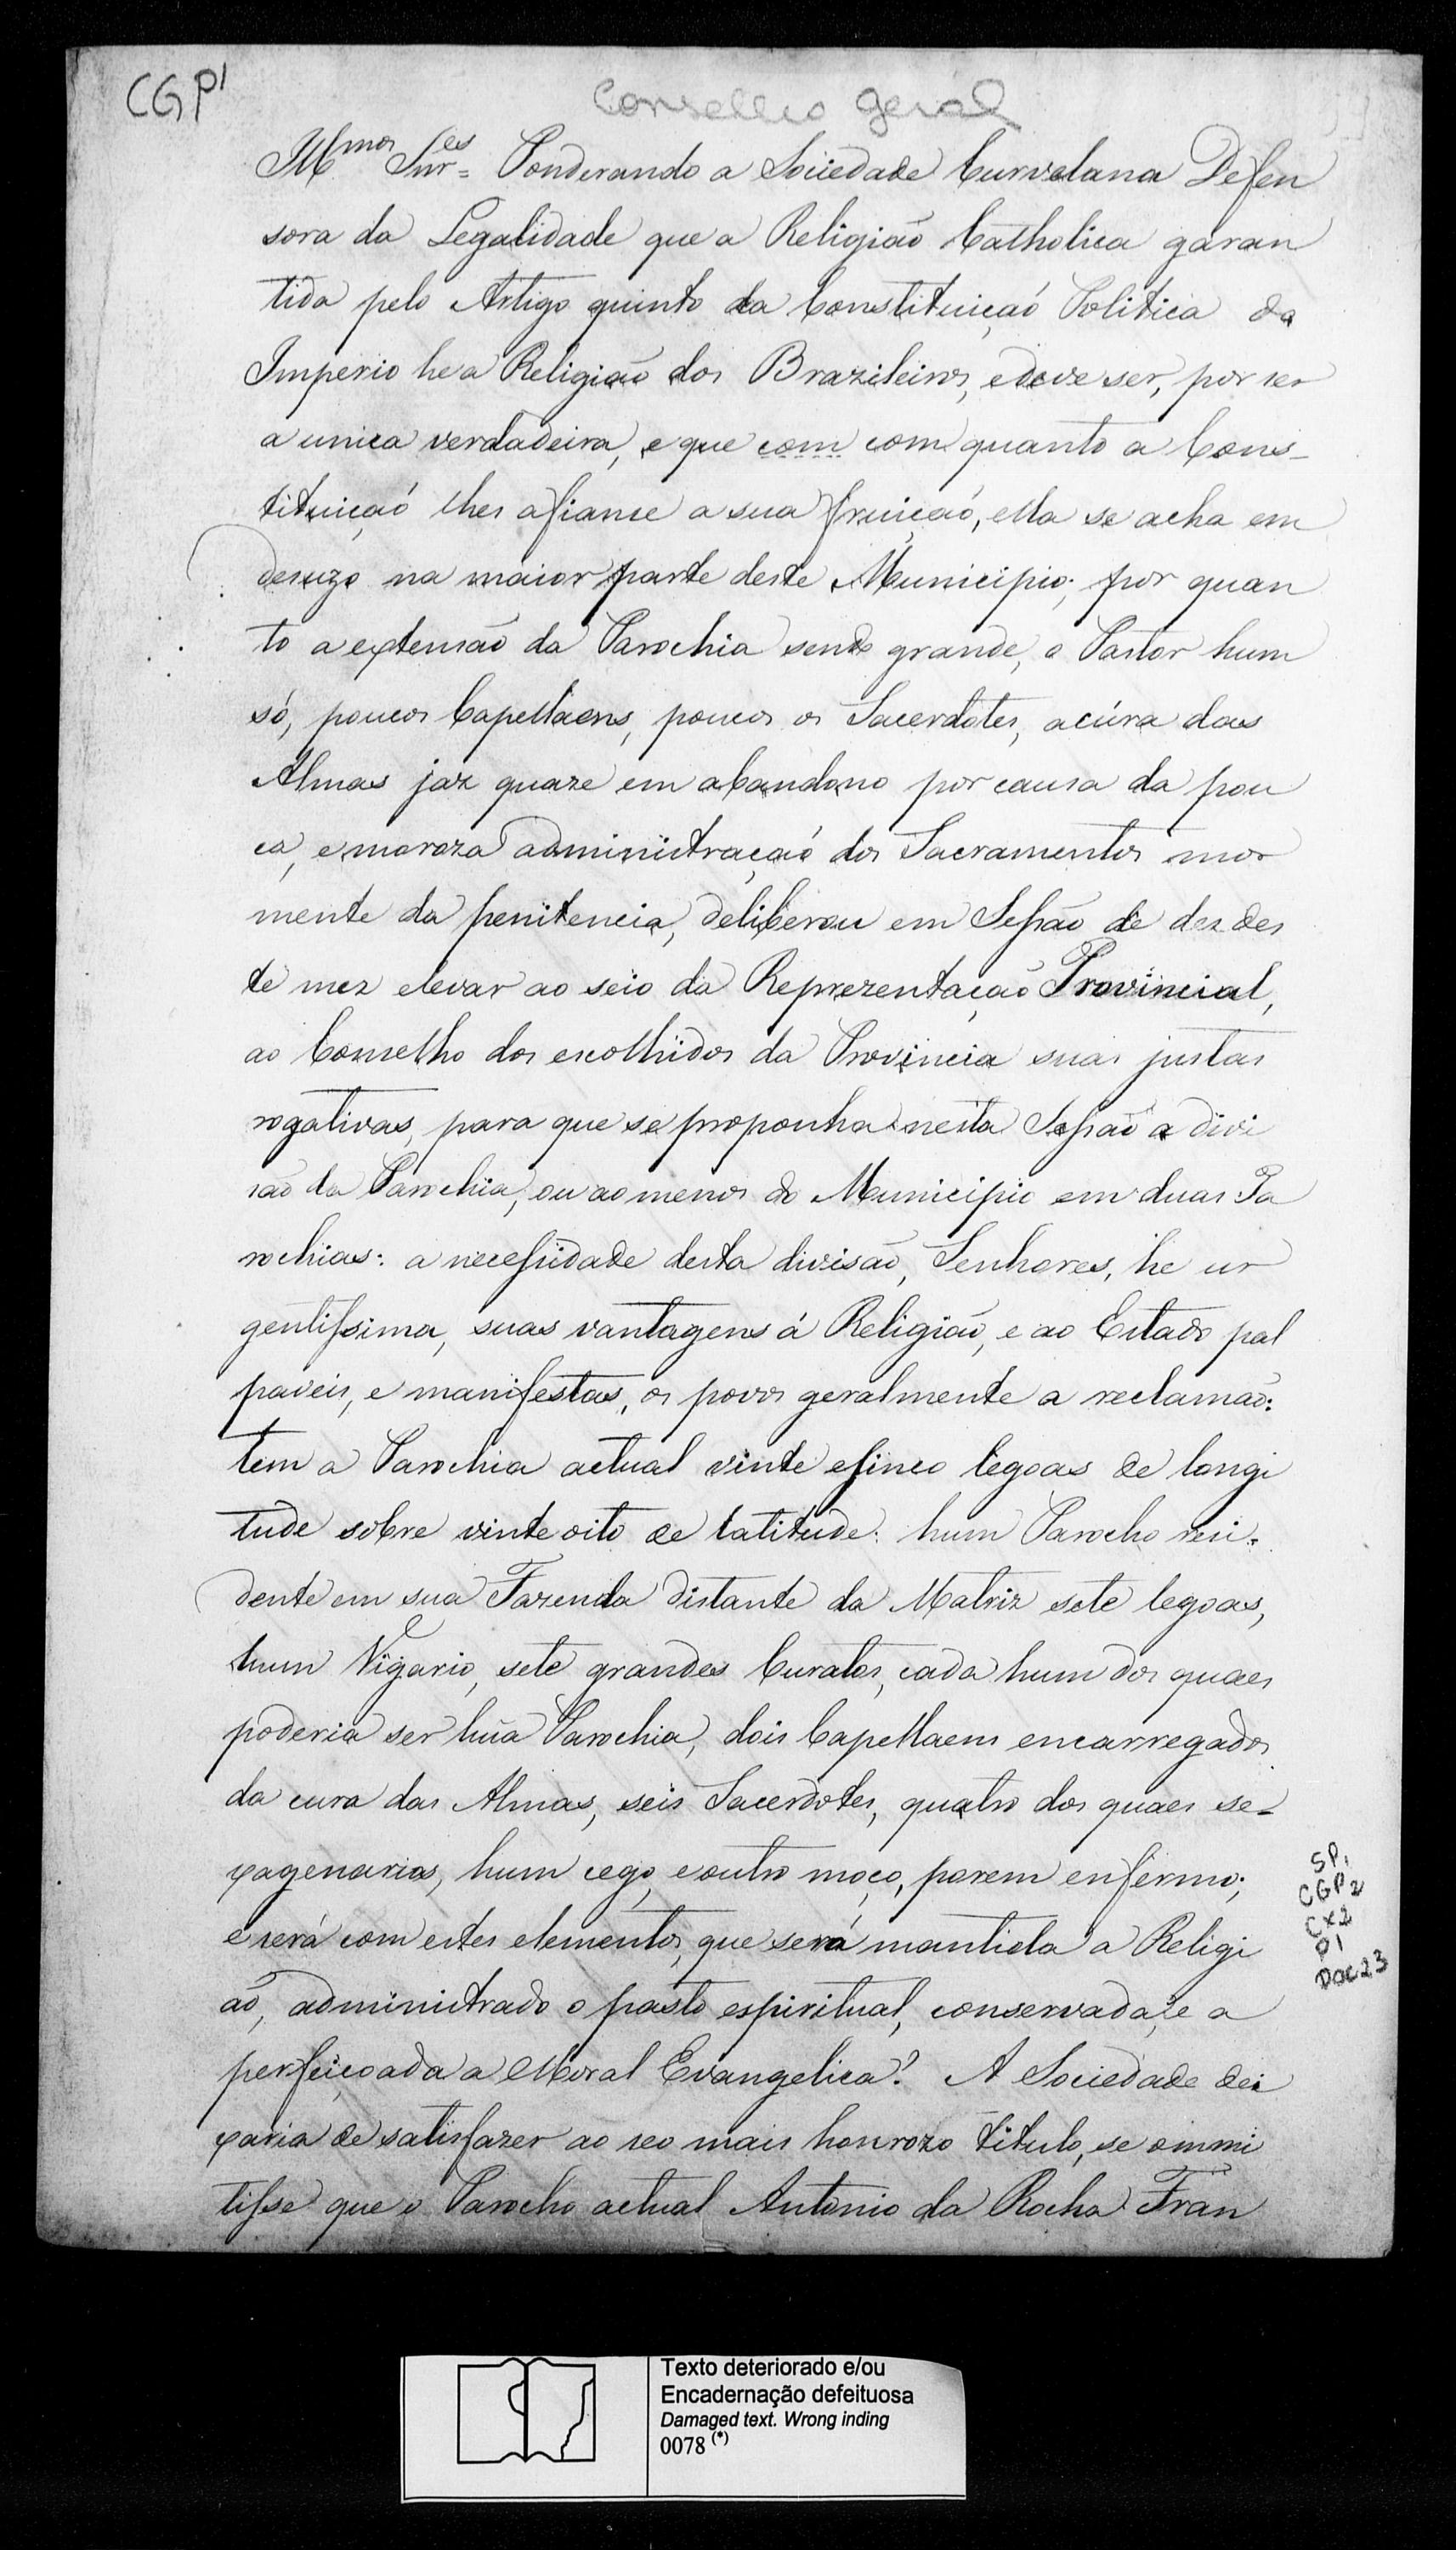 CGP1
Conselho geral
Illmos Snres = Ponderando a Sociedade Curvelana Defen
sora da Legalidade que a Religião Catholica garan
tida pelo Artigo quinto da Constituiçaó Politica do
Imperio he a Religião dos Brazileiros, e deve ser, por ser
a unica verdadeira, e que com com quanto a Cons-
tituiçaó lhes afiance a sua fruiçaó, ella se acha em
desuzo na maior parte deste Municipio; por quan
to a extensão da Parochia sendo grande, o Pastor hum
só, poucos Capellaens, poucos os Sacerdotes, a cúra das
Almas jaz quaze em abandono por causa da pou
ca, e moroza administraçaó dos Sacramentos mor
mente da penitencia, deliberou em Seſsão de dez des
te mez elevar ao seio da Reprezentação Provincial,
ao Conselho dos escolhidos da Provincia suas justas
rogativas, para que se proponha nesta Seſsaõ a divi
são da Parochia, ou ao menos do Municipio em duas Pa
rochias: a neceſsidade desta divisão, Senhores, he ur
gentiſsima, suas vantagens á Religião, e ao Estado pal
paveis, e manifestas, os povos geralmente a reclamaõ:
tem a Parochia actual vinte e sinco legoas de longi
tude sobre vinte oito de latitude: hum Parocho resi-
dente em sua Fazenda distante da Matriz sete legoas,
hum Vigario, sete grandes Curatos, cada hum dos quaes
poderia ser huã Parochia, dois Capellaens encarregados
da cura das Almas, seis Sacerdotes, quatro dos quaes se-
xagenarios, hum cego, e outro moço, porem enfermo;
e será com estes elementos, que será mantida a Religi
aõ, administrado o pasto espiritual, conservada, e a
perfeiçoada a Moral Evangelica? A Sociedade dei
xaria de satisfazer ao seo mais honrozo titulo, se ommi
tiſse que o Parocho actual Antonio da Rocha Fran
SP1
CGP2
CX2
P1
DOC23
Texto deteriorado e/ou
Encadernação defeituosa
Damaged text. Wrong inding
0078 (*)